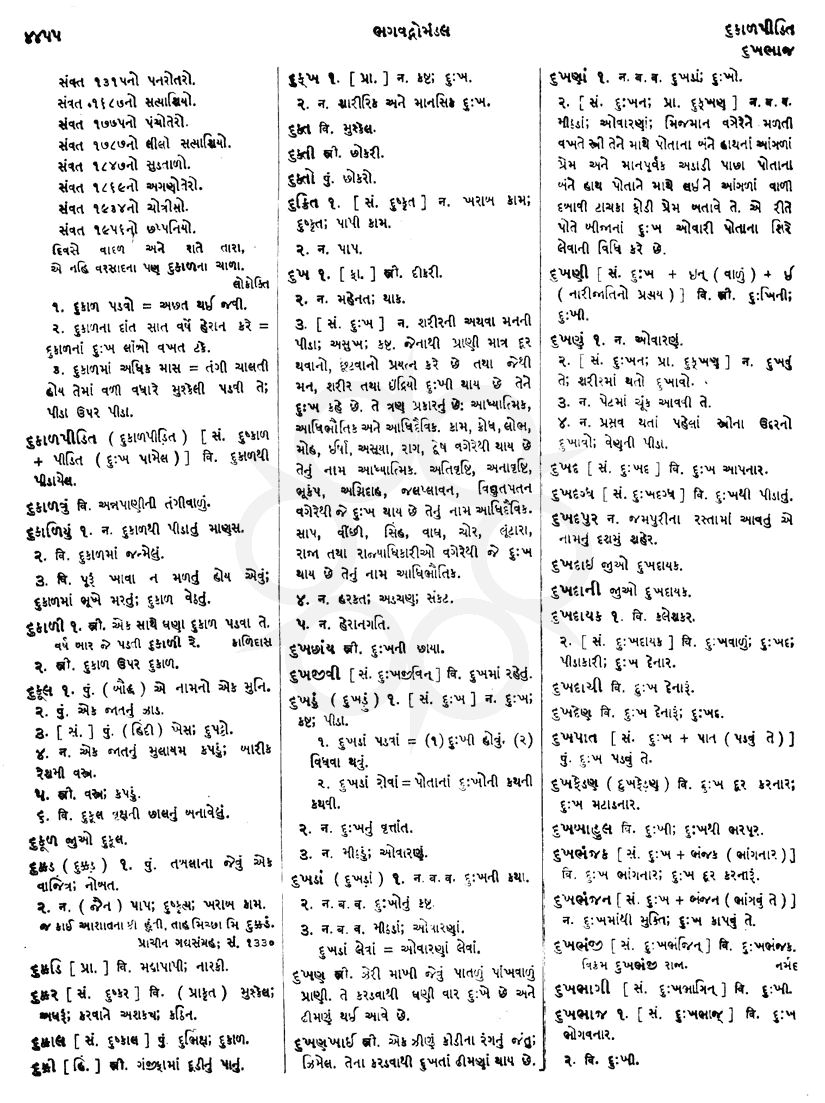 ૪૪૫૫
ભગવદ્ગોમંડલ
દુકાળપીડિત
દુખભાજ
સંવત ૧૩૧૫નો પનરોતરો.
સંવત ૧૬૮૭નો સત્યાશિયો.
સંવત ૧૭૭૫નો પંચોતેરો.
સંવત ૧૭૮૭નો લીલો સત્યાશિયો.
સંવત ૧૮૪૭નો સુડતાળો.
સંવત ૧૮૬૯નો અગણોતેરો.
સંવત ૧૯૩૪નો ચોત્રીસો.
સંવત ૧૯૫૬નો છપ્પનિયો.
દિવસે વાદળ અને રાતે તારા,
એ નહિ વરસાદના પણ દુકાળના ચાળા.
લોકોક્તિ
૧. દુકાળ પડવો = અછત થઈ જવી.
૨. દુકાળના દાંત સાત વર્ષે હેરાન કરે =
દુકાળનાં દુઃખ લાંબો વખત ટકે.
૩. દુકાળમાં અધિક માસ = તંગી ચાલતી
હોય તેમાં વળી વધારે મુશ્કેલી પડવી તે;
પીડા ઉપર પીડા.
દુકાળપીડિત (દુકાળપીડિત) [ સં. દુષ્કાળ
+ પીડિત ( દુઃખ પામેલ ) ] વિ. દુકાળથી
પીડાયેલ.
દુકાળવું વિ. અન્નપાણીની તંગીવાળું.
દુકાળિયું ૧. ન. દુકાળથી પીડાતું માણસ.
૨. વિ. દુકાળમાં જન્મેલું.
૩. વિ. પૂરૂં ખાવા ન મળતું હોય એવું;
દુકાળમાં ભૂખે મરતું; દુકાળ વેઠતું.
દુકાળી ૧. સ્ત્રી. એક સાથે ઘણા દુકાળ પડવા તે.
વર્ષ બાર જે પડતી દુકાળી રે. કાળિદાસ
૨. સ્ત્રી. દુકાળ ઉપર દુકાળ.
દુકૂલ ૧. પું. ( બૌદ્ધ ) એ નામનો એક મુનિ.
૨. પું. એક જાતનું ઝાડ.
૩. [ સં. ] પું. ( હિંદી ) ખેસ; દુપટ્ટો.
૪. ન. એક જાતનું મુલાયમ કપડું; બારીક
રેશમી વસ્ત્ર.
૫. સ્ત્રી. વસ્ત્ર; કપડું.
૬. વિ. દુકૂલ વૃક્ષની છાલનું બનાવેલું.
દુકૂળ જુઓ દુકૂલ.
દુક્કડ ( દુક્કડ઼ ) ૧. પું. તબલાના જેવું એક
વાજિંત્ર; નોબત.
૨. ન. ( જૈન ) પાપ; દુષ્કૃત્ય; ખરાબ કામ.
જ કાઈ આશાતના કી હૂંતી, તાહ મિચ્છા મિ દુક્કડં.
પ્રાચીન ગદ્યસંગ્રહ; સં. ૧૩૩૦
દુક્કડિ [ પ્રા. ] વિ. મહાપાપી; નારકી.
દુક્કર [ સં. દુષ્કર ] વિ. ( પ્રાકૃત ) મુશ્કેલ;
અઘરૂં; કરવાને અશક્ય; કઠિન.
દુક્કાલ [ સં. દુષ્કાલ ] પું. દુર્ભિક્ષ; દુકાળ.
દુક્કી [ હિં. ] સ્ત્રી. ગંજીફામાં દૂડીનું પાનું.
દુક્ખ ૧. [ પ્રા. ] ન. કષ્ટ; દુઃખ.
૨. ન. શારીરિક અને માનસિક દુઃખ.
દુક્ત વિ. મુશ્કેલ.
દુક્તી સ્ત્રી. છોકરી.
દુક્તો પું. છોકરો.
દુક્રિત ૧. [ સં. દુષ્કૃત ] ન. ખરાબ કામ;
દુષ્કૃત; પાપી કામ.
૨. ન. પાપ.
દુખ ૧. [ ફા. ] સ્ત્રી. દીકરી.
૨. ન. મહેનત; થાક.
૩. [ સં. દુઃખ ] ન. શરીરની અથવા મનની
પીડા; અસુખ; કષ્ટ. જેનાથી પ્રાણી માત્ર દૂર
થવાનો, છૂટવાનો પ્રયત્ન કરે છે તથા જેથી
મન, શરીર તથા ઇંદ્રિયો દુઃખી થાય છે તેને
દુઃખ કહે છે. તે ત્રણ પ્રકારનું છેઃ આધ્યાત્મિક,
આધિભૌતિક અને આધિદૈવિક. કામ, ક્રોધ, લોભ,
મોહ, ઈર્ષા, અસૂયા, રાગ, દ્વેષ વગેરેથી થાય છે
તેનું નામ આધ્યાત્મિક. અતિવૃષ્ટિ, અનાવૃષ્ટિ,
ભૂકંપ, અગ્નિદાહ, જલપ્લાવન, વિદ્યુતપતન
વગેરેથી જે દુઃખ થાય છે તેનું નામ આધિદૈવિક.
સાપ, વીંછી, સિંહ, વાઘ, ચોર, લૂંટારા,
રાજા તથા રાજ્યાધિકારીઓ વગેરેથી જે દુઃખ
થાય છે તેનું નામ આધિભૌતિક.
૪. ન. હરકત; અડચણ; સંકટ.
૫. ન. હેરાનગતિ.
દુખછાંય સ્ત્રી. દુઃખની છાયા.
દુખજીવી [ સં. દુઃખજીવિન્ ] વિ. દુખમાં રહેતું.
દુખડું ( દુખડ઼ું ) ૧. [ સં. દુઃખ ] ન. દુઃખ;
કષ્ટ; પીડા.
૧. દુખડાં પડવાં = (૧) દુઃખી હોવું. (૨)
વિધવા થવું.
૨. દુખડાં રોવાં = પોતાનાં દુઃખોની કથની
કથવી.
૨. ન. દુઃખનું વૃત્તાંત.
૩. ન. મીઠડું; ઓવારણું.
દુખડાં ( દુખડ઼ાં ) ૧. ન. બ. વ. દુઃખની કથા.
૨. ન. બ. વ. દુઃખોનું કષ્ટ.
૩. ન. બ. વ. મીઠડાં; ઓવારણાં.
દુખડાં લેવાં = ઓવારણાં લેવાં.
દુખણ સ્ત્રી. ઝેરી માખી જેવું પાતળું પાંખવાળું
પ્રાણી. તે કરડવાથી ઘણી વાર દુઃખે છે અને
ઢીમણું થઈ આવે છે.
દુખણખાઈ સ્ત્રી. એક ઝીણું કોડીના રંગનું જંતુ;
ઝિમેલ. તેના કરડવાથી દુખતાં ઢીમણાં થાય છે.
દુખણાં ૧. ન. બ. વ. દુખડાં; દુઃખો.
૨. [ સં. દુઃખન; પ્રા. દુક્ખણ ] ન. બ. વ.
મીઠડાં; ઓવારણાં; મિજમાન વગેરેને મળતી
વખતે સ્ત્રી તેને માથે પોતાના બંને હાથનાં આંગળાં
પ્રેમ અને માનપૂર્વક અડાડી પાછા પોતાના
બંને હાથ પોતાને માથે લઈને આંગળાં વાળી
દબાવી ટાચકા ફોડી પ્રેમ બતાવે તે. એ રીતે
પોતે બીજાનાં દુઃખ ઓવારી પોતાના શિરે
લેવાની વિધિ કરે છે.
દુખણી [ સં. દુઃખ + ઇન્ ( વાળું ) + ઈ
( નારીજાતિનો પ્રત્યય ) ] વિ. સ્ત્રી. દુઃખિની;
દુઃખી.
દુખણું ૧. ન. ઓવારણું.
૨. [ સં. દુઃખન; પ્રા. દુક્ખણ ] ન. દુખવું
તે; શરીરમાં થતો દુખાવો.
૩. ન. પેટમાં ચૂંક આવવી તે.
૪. ન. પ્રસવ થતાં પહેલાં સ્ત્રીના ઉદરનો
દુખાવો; વેણુની પીડા.
દુખદ [ સં. દુઃખદ ] વિ. દુઃખ આપનાર.
દુખદગ્ધ [ સં. દુઃખદગ્ધ ] વિ. દુઃખથી પીડાતું.
દુખદપુર ન. જમપુરીના રસ્તામાં આવતું એ
નામનું દશમું શહેર.
દુખદાઈ જુઓ દુખદાયક.
દુખદાની જુઓ દુખદાયક.
દુખદાયક ૧. વિ. કલેશકર.
૨. [ સં. દુઃખદાયક ] વિ. દુઃખવાળું; દુઃખદ;
પીડાકારી; દુઃખ દેનાર.
દુખદાયી વિ. દુઃખ દેનારૂં.
દુખદેણ વિ. દુઃખ દેનારૂં; દુઃખદ.
દુખપાત [ સં. દુઃખ + પાત ( પડવું તે ) ]
પું. દુઃખ પડવું તે.
દુખફેડણ ( દુખફેડ઼ણ ) વિ. દુઃખ દૂર કરનાર;
દુઃખ મટાડનાર.
દુખબાહુલ વિ. દુઃખી; દુઃખથી ભરપૂર.
દુખભંજક [ સં. દુઃખ + ભંજક ( ભાંગનાર ) ]
વિ. દુઃખ ભાંગનાર; દુઃખ દૂર કરનારૂં.
દુખભંજન [ સં. દુઃખ + ભંજન ( ભાંગવું તે ) ]
ન. દુઃખમાંથી મુક્તિ; દુઃખ કાપવું તે.
દુખભંજી [ સં. દુઃખભંજિન્ ] વિ. દુઃખભંજક.
વિક્રમ દુખભંજી રાજા. નર્મદ
દુખભાગી [ સં. દુઃખભાગિન્ ] વિ. દુઃખી.
દુખભાજ ૧. [ સં. દુઃખભાજ્ ] વિ. દુઃખ
ભોગવનાર.
૨. વિ. દુઃખી.